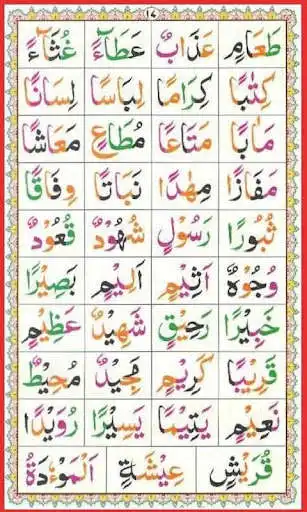 ١٤
طَعَامٍ عَذَابٌ عَطَآءً غُثَآءً
كِتٰبًا كِرَامًا لِبَاسًا لِسَانًا
مَاٰبًا مَتَاعًا مُطَاعٍ مَعَاشًا
مَفَازًا مِهٰدًا نَبَاتًا وِفَاقًا
ثُبُورًا رَسُوْلٍ شُهُوْدٌ قُعُوْدٌ
وُجُوْهٌ اَثِيْمٍ اَلِيْمٍ بَصِيْرًا
خَبِيْرًا رَحِيْقٍ شَهِيْدٌ عَظِيْمٍ
قَرِيْبًا كَرِيْمٍ مَجِيْدٌ مُحِيْطٌ
نَعِيْمٍ يَتِيْمًا يَسِيْرًا رُوَيْدًا
قُرَيْشٍ عِيْشَةٍ اَلْمَوْءٗدَةُ